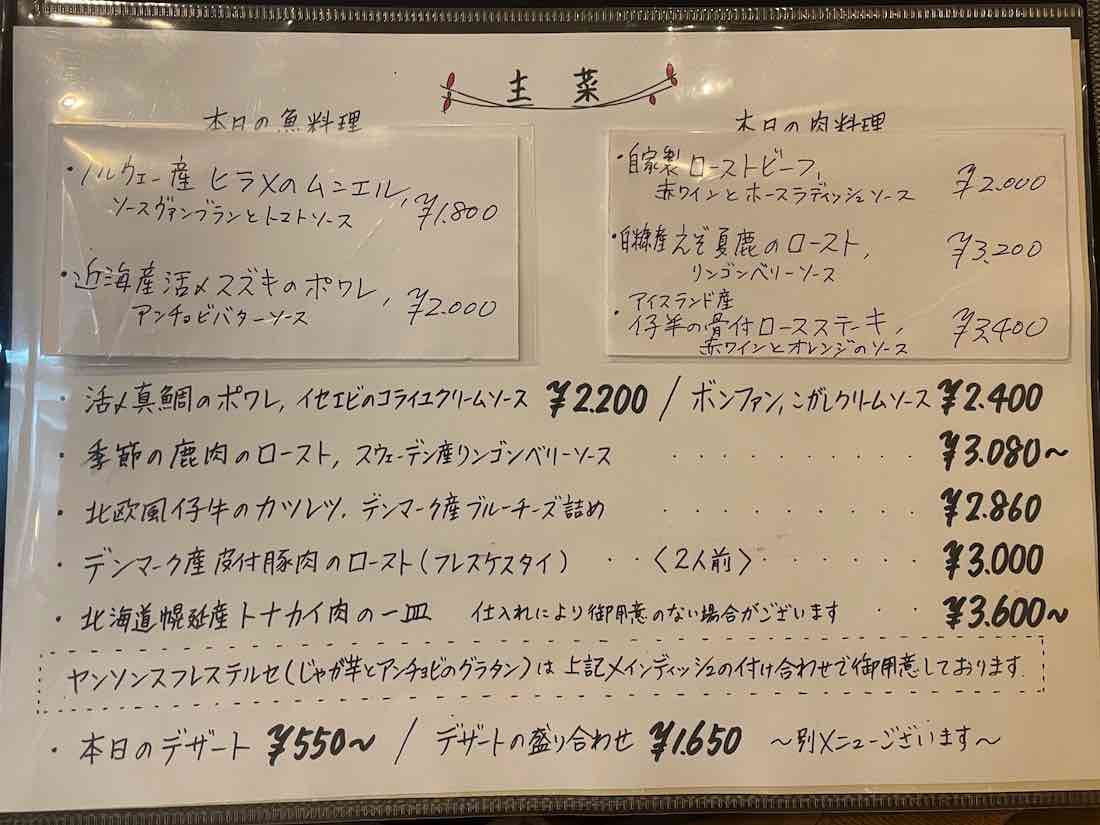 主菜
本日の魚料理
・ノルウェー産 ヒラメのムニエル, ¥1.800
ソースヴァンブランとトマトソース
・近海産活〆スズキのポワレ, ¥2.000
アンチョビバターソース
本日の肉料理
・自家製ローストビーフ, ¥2.000
赤ワインとホースラディッシュソース
・白糠産えぞ夏鹿のロースト, ¥3.200
リンゴンベリーソース
アイスランド産
・仔羊の骨付ロースステーキ, ¥3,400
赤ワインとオレンジのソース
・活〆真鯛のポワレ, イセエビのコライユクリームソース ¥2.200 / ボンファン, こがしクリームソース ¥2.400
・季節の鹿肉のロースト, スウェーデン産リンゴンベリーソース ・・・・・・・・・・ ¥3.080~
・北欧風仔牛のカツレツ. デンマーク産ブルーチーズ詰め ・・・・・・・・・・ ¥2.860
・デンマーク産皮付豚肉のロースト(フレスケスタイ) ・・〈2人前〉・・・・・・ ¥3.000
・北海道幌延産トナカイ肉の一皿 仕入れにより御用意のない場合がございます ・・ ¥3.600~
ヤンソンスフレステルセ(じゃが芋とアンチョビのグラタン)は上記メインディッシュの付け合わせで御用意しております.
・本日のデザート ¥550~ / デザートの盛り合わせ ¥1.650 ~別メニューございます~